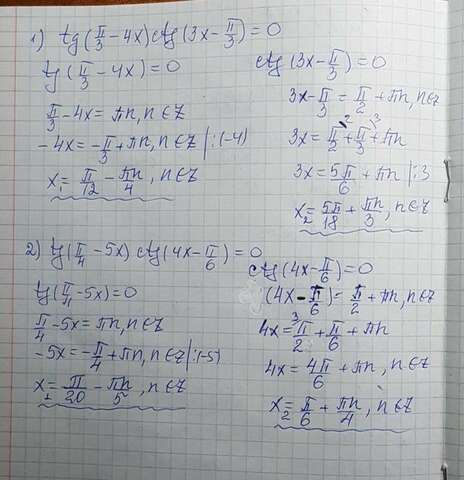 1) tg(π/3 - 4x) ctg(3x - π/3) = 0
tg(π/3 - 4x) = 0
π/3 - 4x = πn, n∈Z
-4x = -π/3 + πn, n∈Z |:(-4)
x₁ = π/12 - πn/4, n∈Z
ctg(3x - π/3) = 0
3x - π/3 = π/2 + πn, n∈Z
3x = π/2 + π/3 + πn
3x = 5π/6 + πn |:3
x₂ = 5π/18 + πn/3, n∈Z
2) tg(π/4 - 5x) ctg(4x - π/6) = 0
tg(π/4 - 5x) = 0
π/4 - 5x = πn, n∈Z
-5x = -π/4 + πn, n∈Z |:(-5)
x₁ = π/20 - πn/5, n∈Z
ctg(4x - π/6) = 0
(4x - π/6) = π/2 + πn, n∈Z
4x = ³π/2 + π/6 + πn
4x = 4π/6 + πn, n∈Z
x₂ = π/6 + πn/4, n∈Z